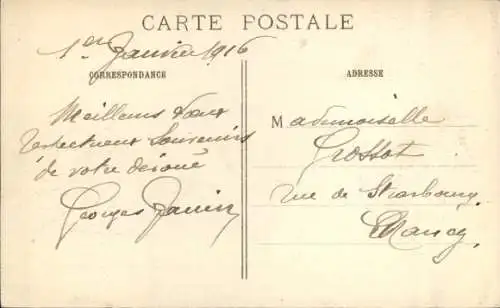 CARTE POSTALE
1er Janvier 1916
CORRESPONDANCE
Meilleurs Vœux
respectueux Souvenirs
de votre dévoué
Georges
ADRESSE
Mademoiselle
Grossot
rue de Strasbourg
Nancy